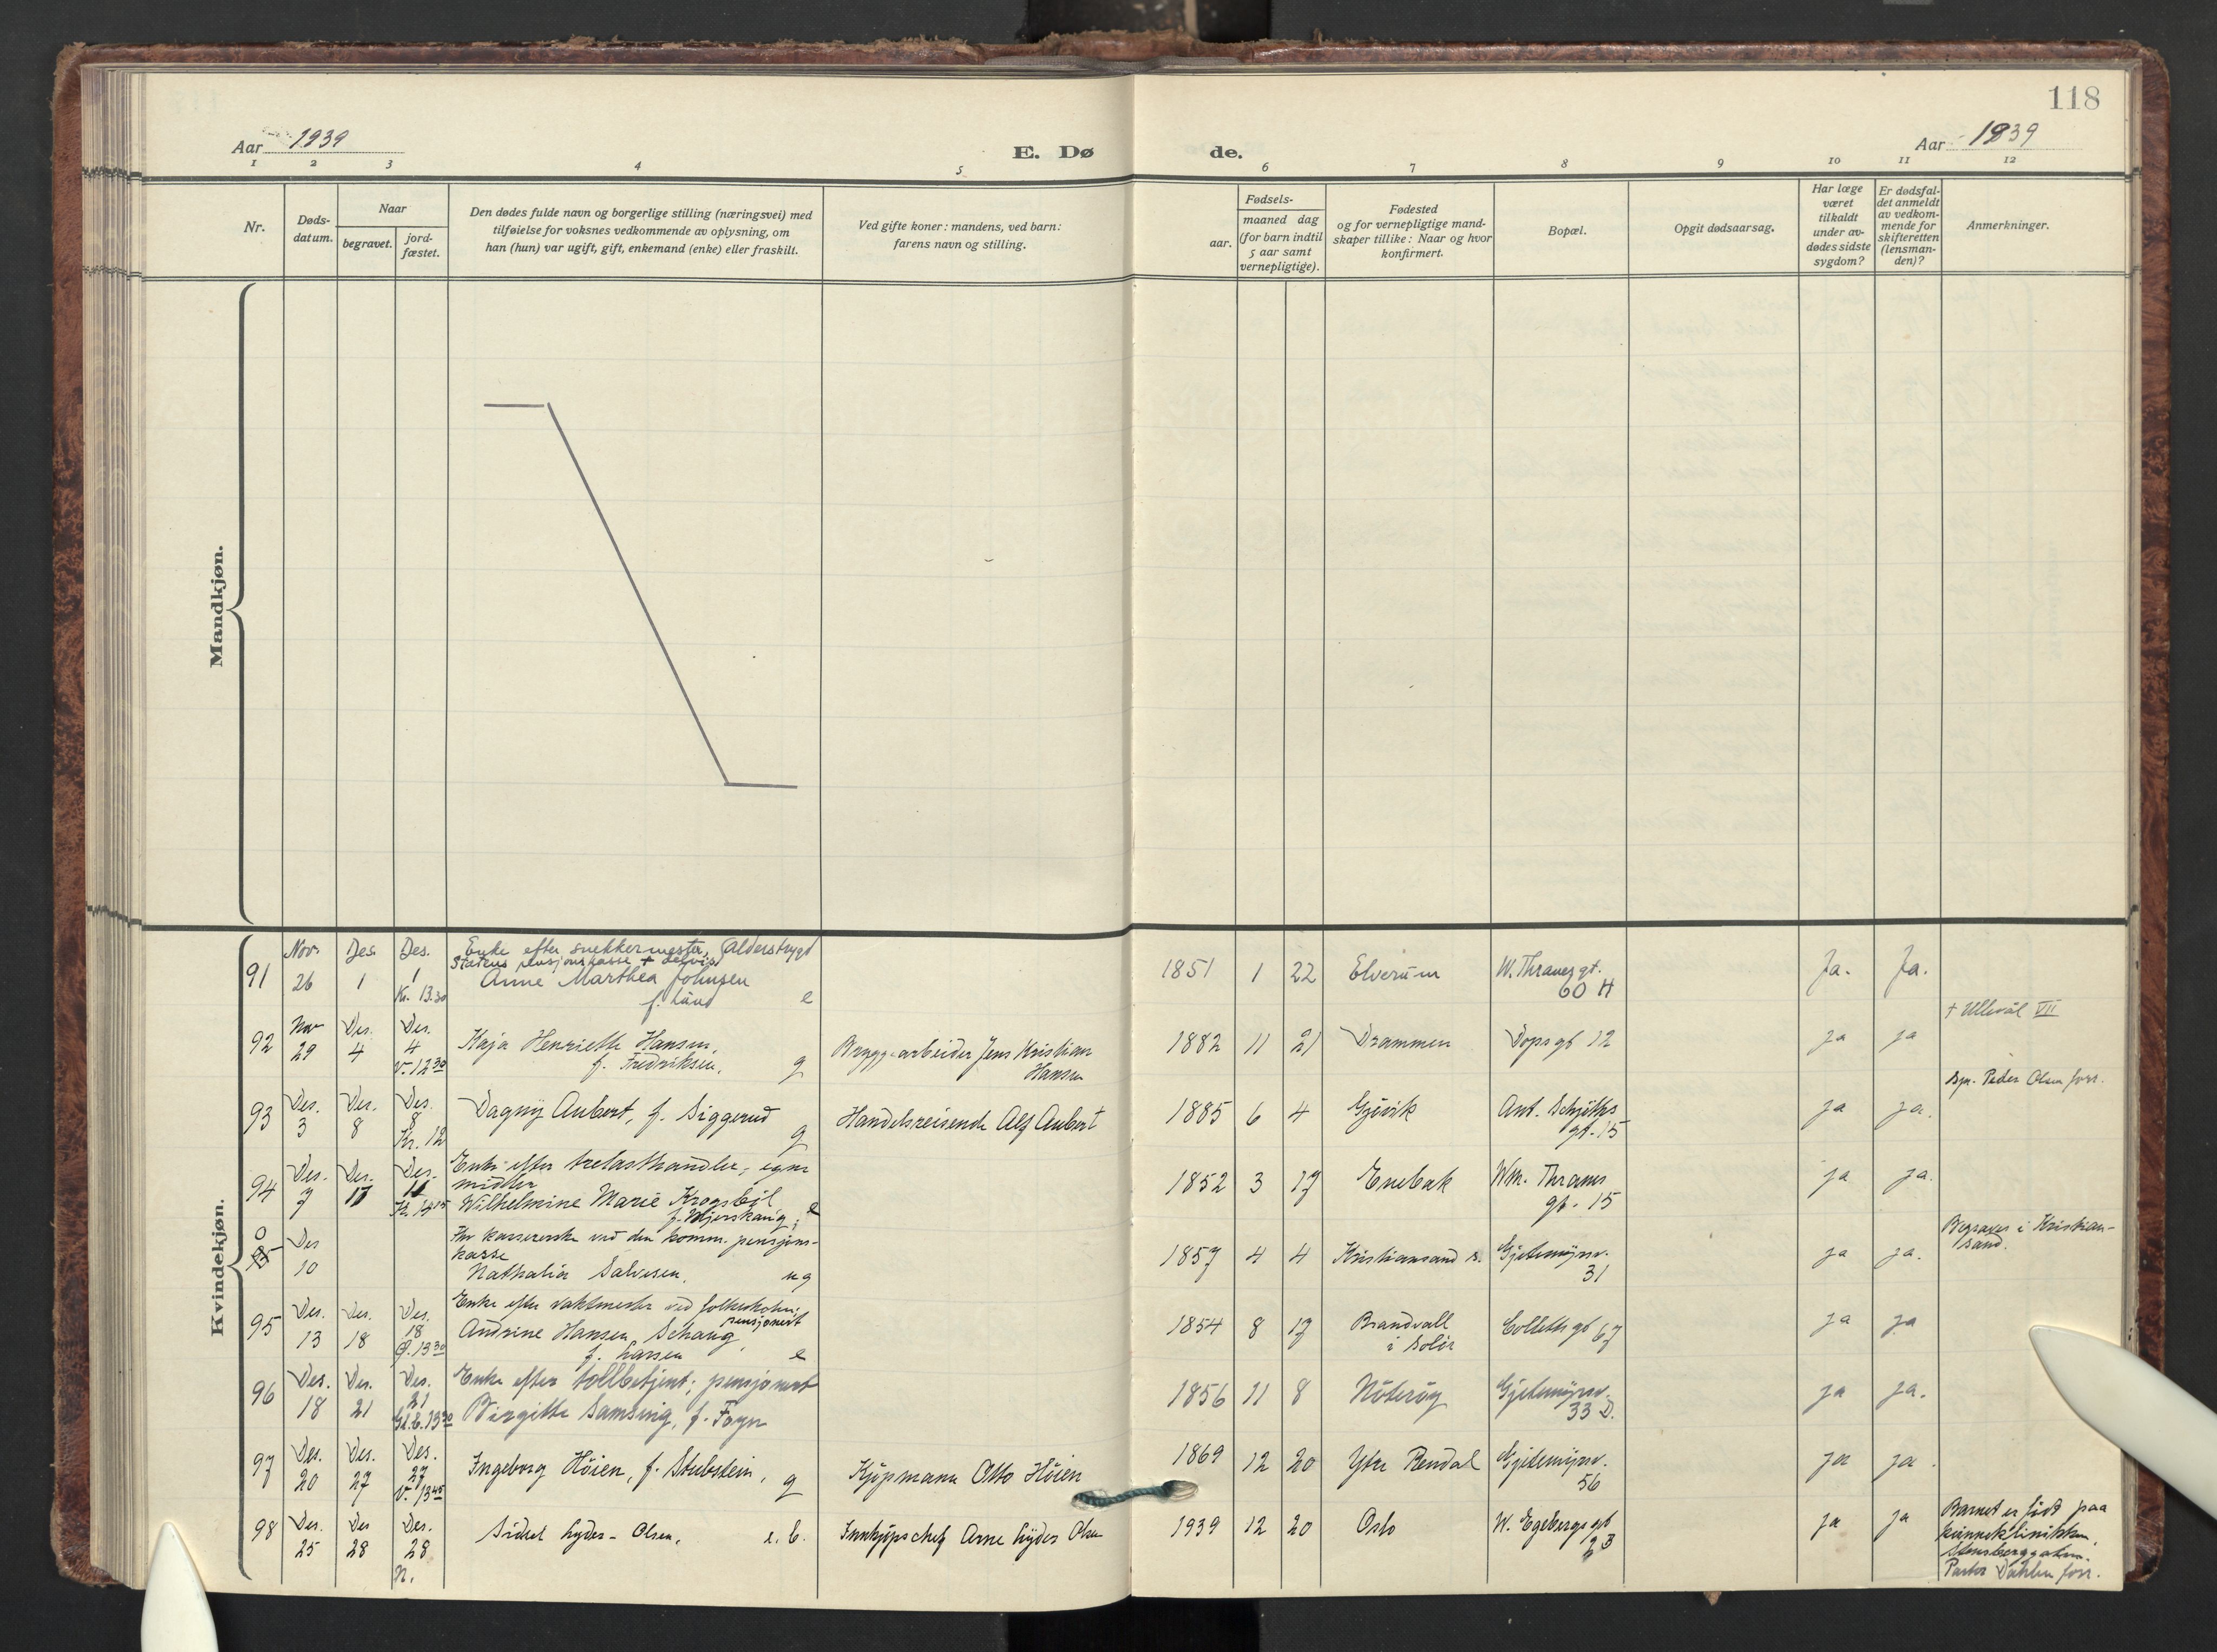 118
Aar 1939
E. Døde.
Aar 1939
1 2 3 4 5 6 7 8 9 10 11 12
Nr.
Døds-
datum.
Naar
begravet.
jord-
fæstet.
Den dødes fulde navn og borgerlige stilling (næringsvei) med
tilføielse for voksnes vedkommende av oplysning, om
han (hun) var ugift, gift, enkemand (enke) eller fraskilt.
Ved gifte koner: mandens, ved barn:
farens navn og stilling.
Fødsels-
aar.
maaned dag
(for barn indtil
5 aar samt
vernepligtige).
Fødested
og for vernepligtige mand-
skaper tillike: Naar og hvor
konfirmert.
Bopæl.
Opgit dødsaarsag.
Har læge
været
tilkaldt
under av-
dødes sidste
sygdom?
Er dødsfal-
det anmeldt
av vedkom-
mende for
skifteretten
(lensman-
den)?
Anmerkninger.
Mandkjøn.
Kvindekjøn.
Nov. Des. Des. Enke efter snekkermester, Alderstrygd
Statens pensjonskasse +
91 26 1 1 Anne Marthea Johnsen 1851 1 22 Elverum W. Thranes gt. Ja. Ja.
Kr. 13.30 f. Lund e 60 H
† Ullevål VII
Nov Des. Des.
92 29 4 4 Kaja Henriette Hansen, Bryggearbeider Jens Kristian 1882 11 21 Drammen Dops gt 12 ja ja
V. 12 30 f. Fredriksen, g Hansen
Spr. Peder Olsen forr.
Des. Des. Des.
93 3 8 8 Dagny Aubert, f. Siggerud Handelsreisende Alf Aubert 1885 6 4 Gjøvik Ant. Schjøths ja ja.
Kr. 12 g gt. 15
Des. Des. Des. Enke efter trelasthandler, egne
midler
94 7 11 11 Wilhelmine Marie Krogsbøl 1852 3 17 Enebak Wm. Thranes ja ja.
Kr. 14 15 e gt. 15
Fhv kassererske ved den komm. pensjons-
kasse
0 Des 10 Nathalia Salvesen, ug 1857 4 4 Kristiansand S. Gjetemyrsv. ja ja. Begraves i Kristian-
31 sand.
Enke efter vaktmester ved folkeskolen;
pensjonert
Des. Des. Des.
95 13 18 18 Andrine Hansen Schaug, 1854 8 17 Brandvall Colletts gt 67 ja ja
13 30 f. Larsen e i Solør
Des. Des. Des. Enke efter tollbetjent; pensjonert
96 18 21 21 Birgitte Samsing, f. Foyn 1856 11 8 Nøterøy Gjetemyrsv. ja ja.
13 30 33 D.
Des. Des. Des.
97 20 27 27 Ingeborg Høien, f. Stubstein, g Kjøpmann Otto Høien 1869 12 20 Ytre Rendal Gjetemyrsv. ja ja.
V. 13 45 56
Des. Des Des.
98 25 28 28 Sidsel Lyder-Olsen, e. b. Innkjøpschef Arne Lyder Olsen 1939 12 20 Oslo W. Egebergs gt ja ja Barnet er født paa
N. 23 kvinneklinikken,
Stensberggaten.
Pastor Dahlen forr.